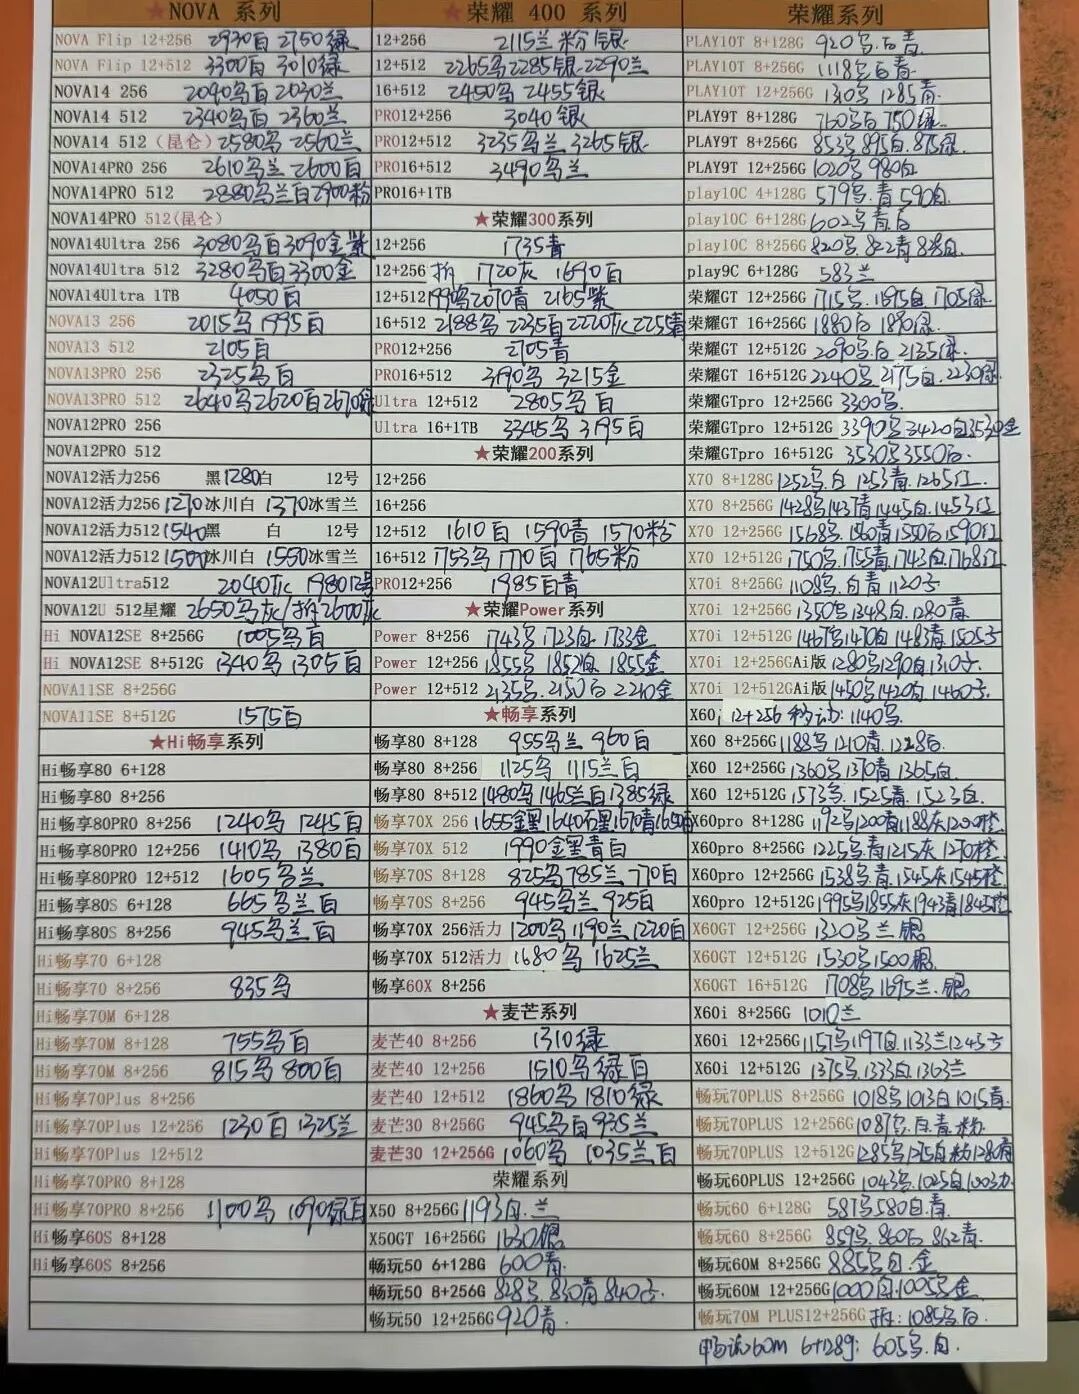 ★NOVA 系列
NOVA Flip 12+256 2930白 2750绿
NOVA Flip 12+512 3300白 3010绿
NOVA14 256 2090乌白 2030兰
NOVA14 512 2340乌白 2360兰
NOVA14 512 (昆仑) 2580乌 2560兰
NOVA14PRO 256 2610乌兰 2600白
NOVA14PRO 512 2880乌兰白 2900粉
NOVA14PRO 512(昆仑)
NOVA14Ultra 256 3080乌白 3090金紫
NOVA14Ultra 512 3280乌白 3300金
NOVA14Ultra 1TB 4050白
NOVA13 256 2015乌 1995白
NOVA13 512 2105白
NOVA13PRO 256 2325乌白
NOVA13PRO 512 2640乌 2620白 2670绿
NOVA12PRO 256
NOVA12PRO 512
NOVA12活力256 黑1280白 12号
NOVA12活力256 1270冰川白 1370冰雪兰
NOVA12活力512 1540黑 白 12号
NOVA12活力512 1500冰川白 1550冰雪兰
NOVA12Ultra512 2040灰 1980 12号
NOVA12U 512星耀 2650乌灰/拆2600灰
Hi NOVA12SE 8+256G 1005乌白
Hi NOVA12SE 8+512G 1340乌 1305白
NOVA11SE 8+256G
NOVA11SE 8+512G 1575白
★Hi畅享系列
Hi畅享80 6+128
Hi畅享80 8+256
Hi畅享80PRO 8+256 1240乌 1245白
Hi畅享80PRO 12+256 1410乌 1380白
Hi畅享80PRO 12+512 1605乌兰
Hi畅享80S 6+128 665乌兰白
Hi畅享80S 8+256 945乌兰白
Hi畅享70 6+128
Hi畅享70 8+256 835乌
Hi畅享70M 6+128
Hi畅享70M 8+128 755乌白
Hi畅享70M 8+256 815乌 800白
Hi畅享70Plus 8+256
Hi畅享70Plus 12+256 1230白 1325兰
Hi畅享70Plus 12+512
Hi畅享70PRO 8+128
Hi畅享70PRO 8+256 1100乌 1090绿白
Hi畅享60S 8+128
Hi畅享60S 8+256
★荣耀 400 系列
12+256 2115兰 粉 银
12+512 2265乌 2285银 2290兰
16+512 2450乌 2455银
PRO12+256 3040银
PRO12+512 3235乌兰 3265银
PRO16+512 3490乌兰
PRO16+1TB
★荣耀300系列
12+256 1735青
12+256 拆 1720灰 1690白
12+512 1990乌 2070青 2165紫
16+512 2188乌 2235白 2220灰 2255青
PRO12+256 2705青
PRO16+512 3190乌 3215金
Ultra 12+512 2805乌白
Ultra 16+1TB 3345乌 3195白
★荣耀200系列
12+256
16+256
12+512 1610白 1590青 1570粉
16+512 1753乌 1770白 1765粉
PRO12+256 1985白青
★荣耀Power系列
Power 8+256 1743乌 1723白 1733金
Power 12+256 1855乌 1852白 1855金
Power 12+512 2135乌 2150白 2210金
★畅享系列
畅享80 8+128 955乌兰 960白
畅享80 8+256 1125乌 1115兰白
畅享80 8+512 1480乌 1465兰白 1385绿
畅享70X 256 1655金黑 1640石黑 1670青 1650白
畅享70X 512 1990金黑青白
畅享70S 8+128 825乌 785兰 770白
畅享70S 8+256 945乌兰 925白
畅享70X 256活力 1200乌 1190兰 1220白
畅享70X 512活力 1680乌 1625兰
畅享60X 8+256
★麦芒系列
麦芒40 8+256 1310绿
麦芒40 12+256 1510乌绿白
麦芒40 12+512 1860乌 1810绿
麦芒30 8+256G 945乌白 935兰
麦芒30 12+256G 1060乌 1035兰白
荣耀系列
X50 8+256G 1193白.兰
X50GT 16+256G 1630银
畅玩50 6+128G 600青.
畅玩50 8+256G 828乌.830青 840
畅玩50 12+256G 920青.
荣耀系列
PLAY10T 8+128G 920乌.白青
PLAY10T 8+256G 1118乌白青
PLAY10T 12+256G 1310乌 1285青
PLAY9T 8+128G 760乌白 750绿
PLAY9T 8+256G 853乌 895白.875绿
PLAY9T 12+256G 1020乌 980白
play10C 4+128G 579乌.青 590白
play10C 6+128G 602乌青白
play10C 8+256G 820乌.822青
play9C 6+128G 583兰
荣耀GT 12+256G 1715乌.1695白 1705绿
荣耀GT 16+256G 1880白 1890绿
荣耀GT 12+512G 2090乌白 2135绿
荣耀GT 16+512G 2240乌 2175白.2230绿
荣耀GTpro 12+256G 3300乌.
荣耀GTpro 12+512G 3390乌 3420白
荣耀GTpro 16+512G 3530乌 3550白.
X70 8+128G 1252乌.白 1253青.1265红
X70 8+256G 1428乌 1437青 1445白.1455红
X70 12+256G 1568乌.1560青 1550白 1590红
X70 12+512G 1750乌.1755青 1743白 1768红
X70i 8+256G 1108乌.白青 1120
X70i 12+256G 1350乌 1348白.1280青
X70i 12+512G 1467乌 1470白 1483青 1505
X70i 12+256GAi版 1280乌 1290白 1310
X70i 12+512GAi版 1450乌 1420白 1460
X60i 12+256 移动:1140乌.
X60 8+256G 1188乌 1210青.1228白.
X60 12+256G 1360乌 1370青 1365白.
X60 12+512G 1573乌.1525青.1523白.
X60pro 8+128G 1192乌 1200青 1188灰 1200橙
X60pro 8+256G 1225乌.青 1215灰 1270橙
X60pro 12+256G 1538乌.青.1545灰 1545橙
X60pro 12+512G 1995乌 1855灰 1943青 1845橙
X60GT 12+256G 1320乌兰 银
X60GT 12+512G 1530乌 1500银
X60GT 16+512G 1708乌 1695兰.银
X60i 8+256G 1010兰
X60i 12+256G 1157乌 1197白.1133兰 1245
X60i 12+512G 1375乌.1333白 1363兰
畅玩70PLUS 8+256G 1018乌 1013白 1015青.
畅玩70PLUS 12+256G 1087乌.白.青.粉.
畅玩70PLUS 12+512G 1285乌 1275白粉 1280青
畅玩60PLUS 12+256G 1043乌.1025白
畅玩60 6+128G 587乌 580白.青
畅玩60 8+256G 859乌.860白 862青.
畅玩60M 8+256G 885乌白.金
畅玩60M 12+256G 1000白.1005乌金
畅玩70M PLUS12+256G 拆:1085乌.白.
畅玩60m 6+128g:605乌.白.